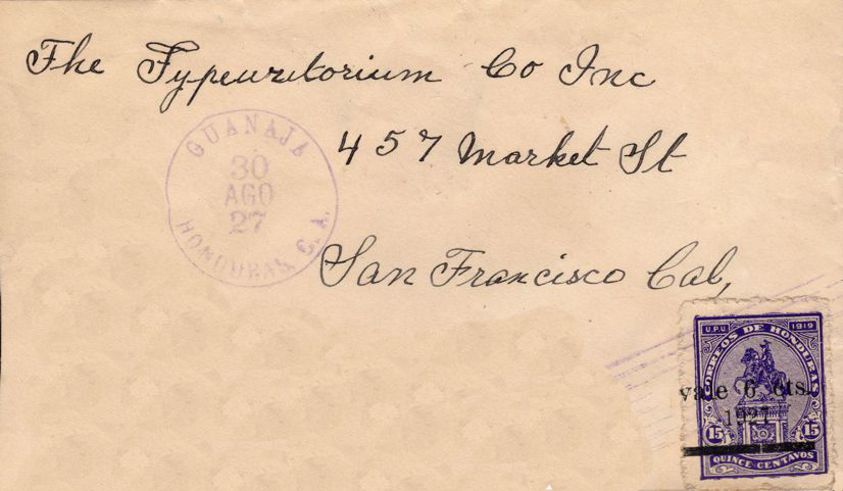 The Typewritorium Co Inc
457 Market St
San Francisco Cal,
GUANAJA
30
AGO
27
HONDURAS, C. A.
U.P.U 1919
CORREOS DE HONDURAS
vale 6 cts.
1927
15 15
QUINCE CENTAVOS